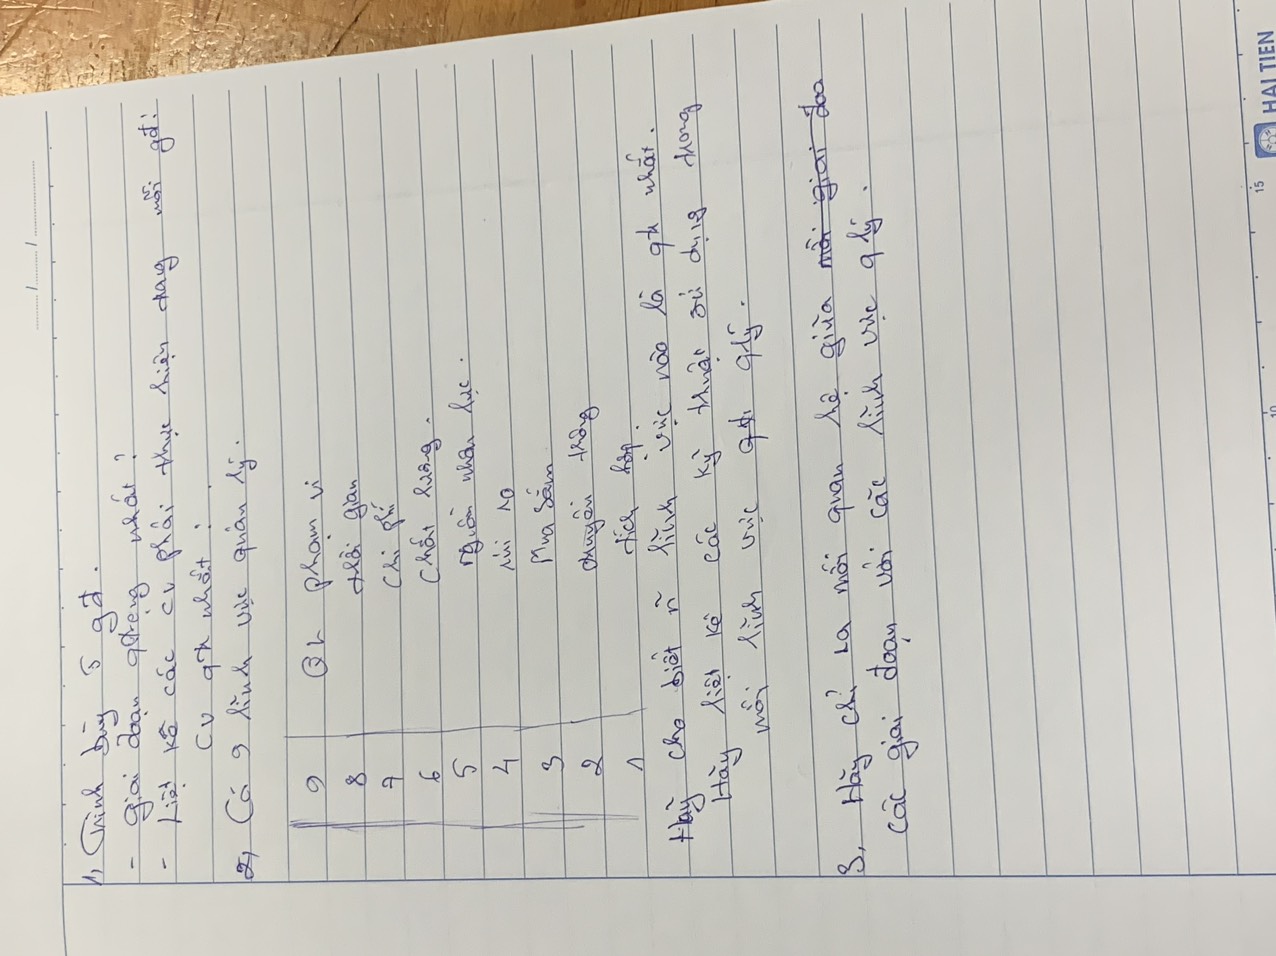 1, Trình bày 5 gđ.
- giai đoạn qtrọng nhất?
- Liệt kê các cv phải thực hiện trong mỗi gđ?
cv qtr nhất?
2, Có 9 lĩnh vực quản lý.
9 QL phạm vi
8 thời gian
7 chi phí
6 chất lượng.
5 nguồn nhân lực.
4 rủi ro
3 Mua sắm
2 truyền thông
1 tích hợp.
Hãy cho biết ~~n~~ lĩnh vực nào là qtr nhất.
Hãy liệt kê các kỹ thuật sử dụng trong
mỗi lĩnh vực qlý.
3, Hãy chỉ ra mối quan hệ giữa ~~mỗi giai đoạ~~
các giai đoạn với các lĩnh vực qlý.
10 15 HẢI TIẾN